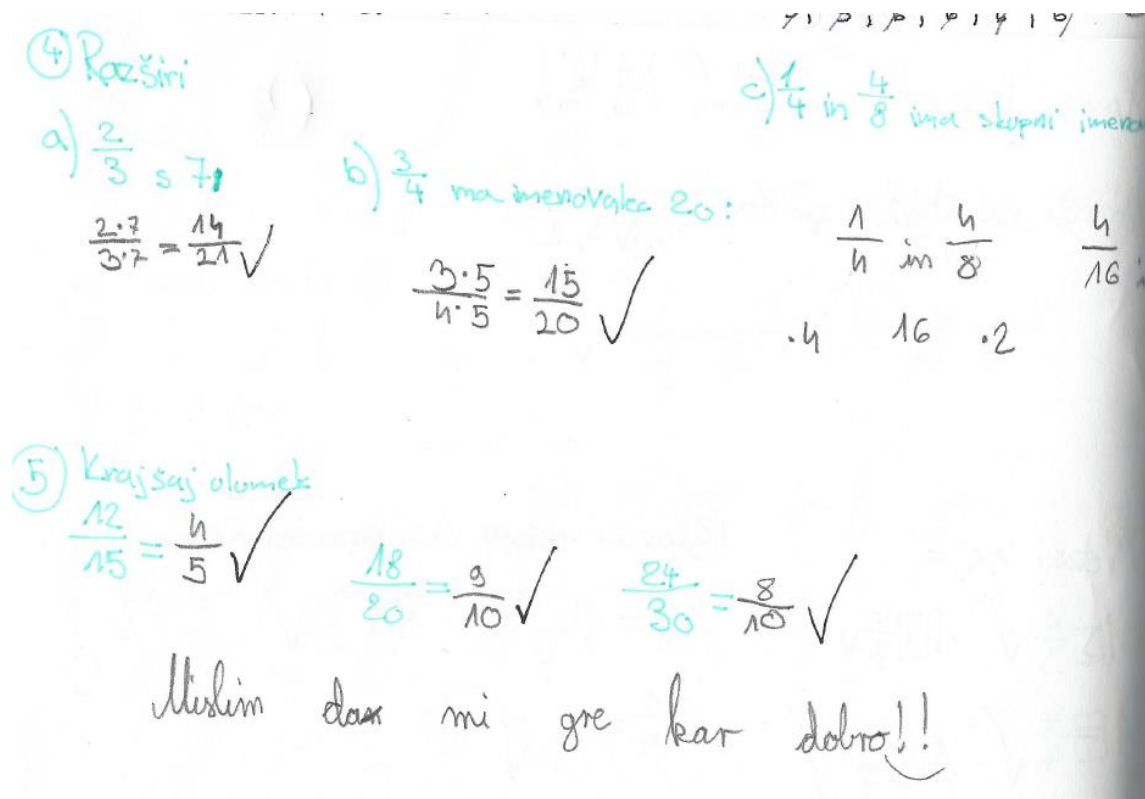 ④ Razširi
a) 2/3 s 7
2·7/3·7 = 14/21 ✓
b) 3/4 ma imenovalec 20:
3·5/4·5 = 15/20 ✓
c) 1/4 in 4/8 ima skupni imeno
1/4 in 4/8 4/16
·4 16 ·2
⑤ Krajšaj ulomek
12/15 = 4/5 ✓
18/20 = 9/10 ✓
24/30 = 8/10 ✓
Mislim da mi gre kar dobro!!